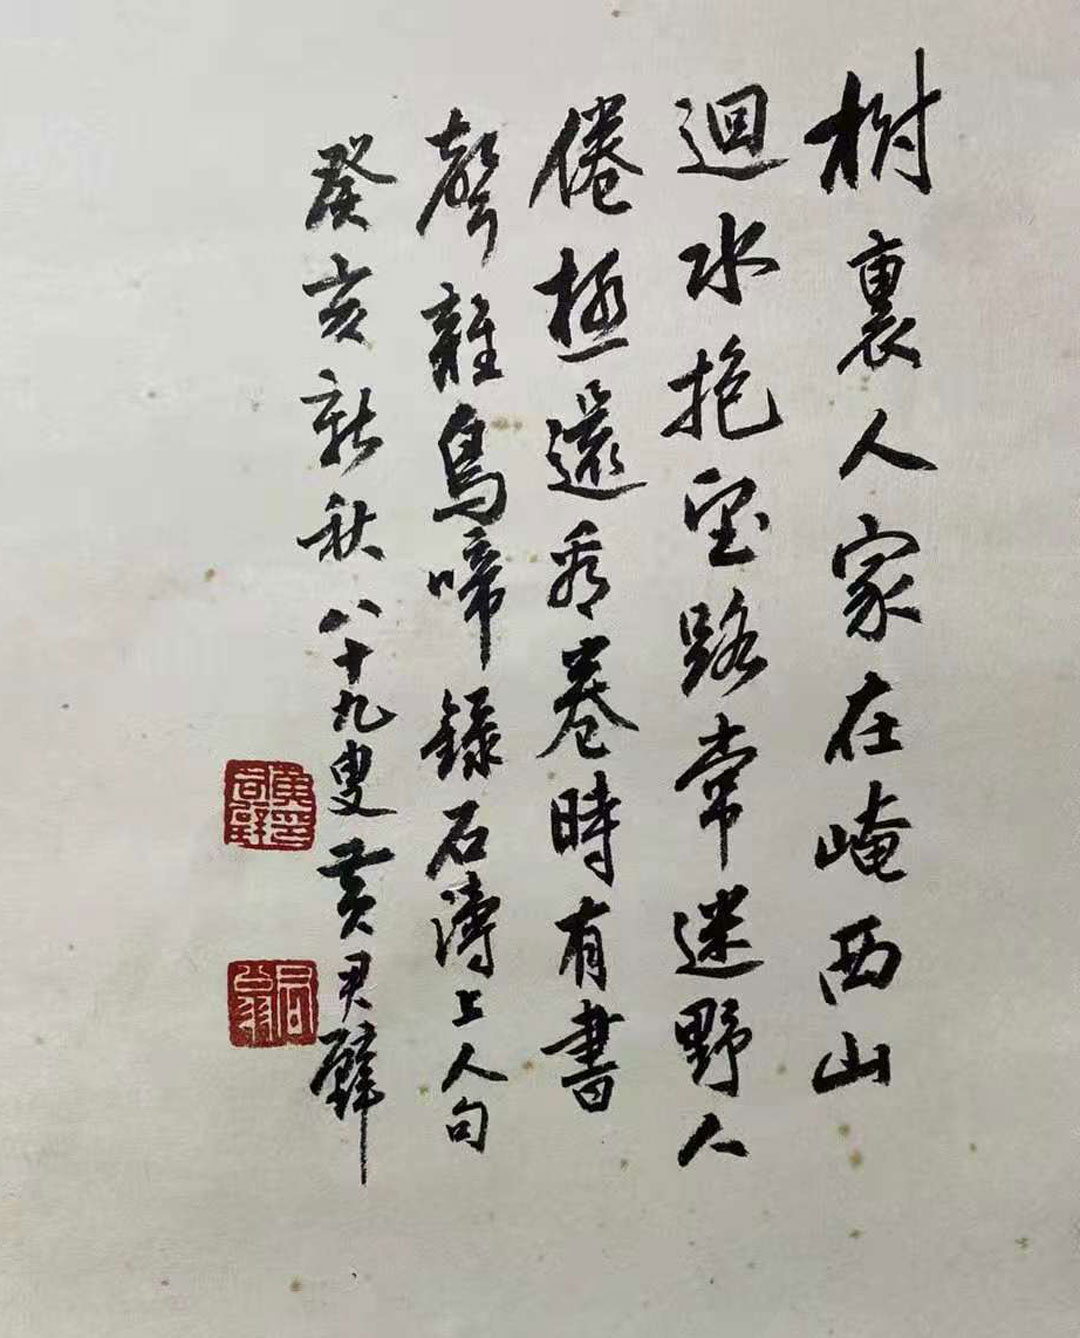 樹裏人家在崦西山
迴水抱望路常迷野人
倦極還看卷時有書
聲雜鳥啼錄石濤上人句
癸亥新秋八十九叟黃君璧
黃印君璧
君翁